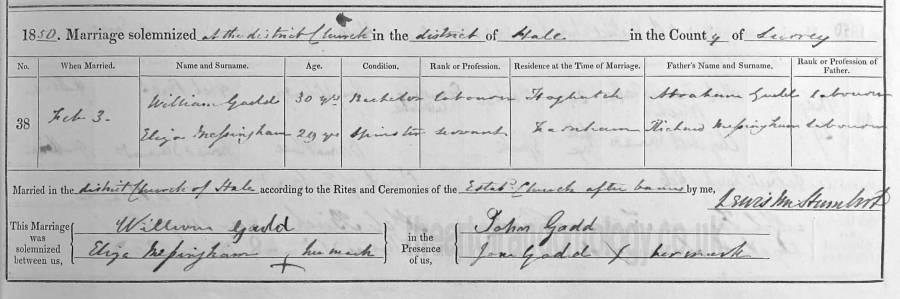 1850. Marriage solemnized at the district Church in the district of Hale in the County of Surrey
No. When Married. Name and Surname. Age. Condition. Rank or Profession. Residence at the Time of Marriage. Father's Name and Surname. Rank or Profession of Father.
38 Feb 3. William Gadd 30 yrs Bachelor labourer Hoghatch Abraham Gadd labourer
Eliza Messingham 29 yrs Spinster servant Farnham Richard Messingham labourer
Married in the district Church of Hale according to the Rites and Ceremonies of the Estabd. Church after banns by me,
This Marriage was solemnized between us, William Gadd in the Presence of us, John Gadd
Eliza Messingham X her mark Jane Gadd X her mark